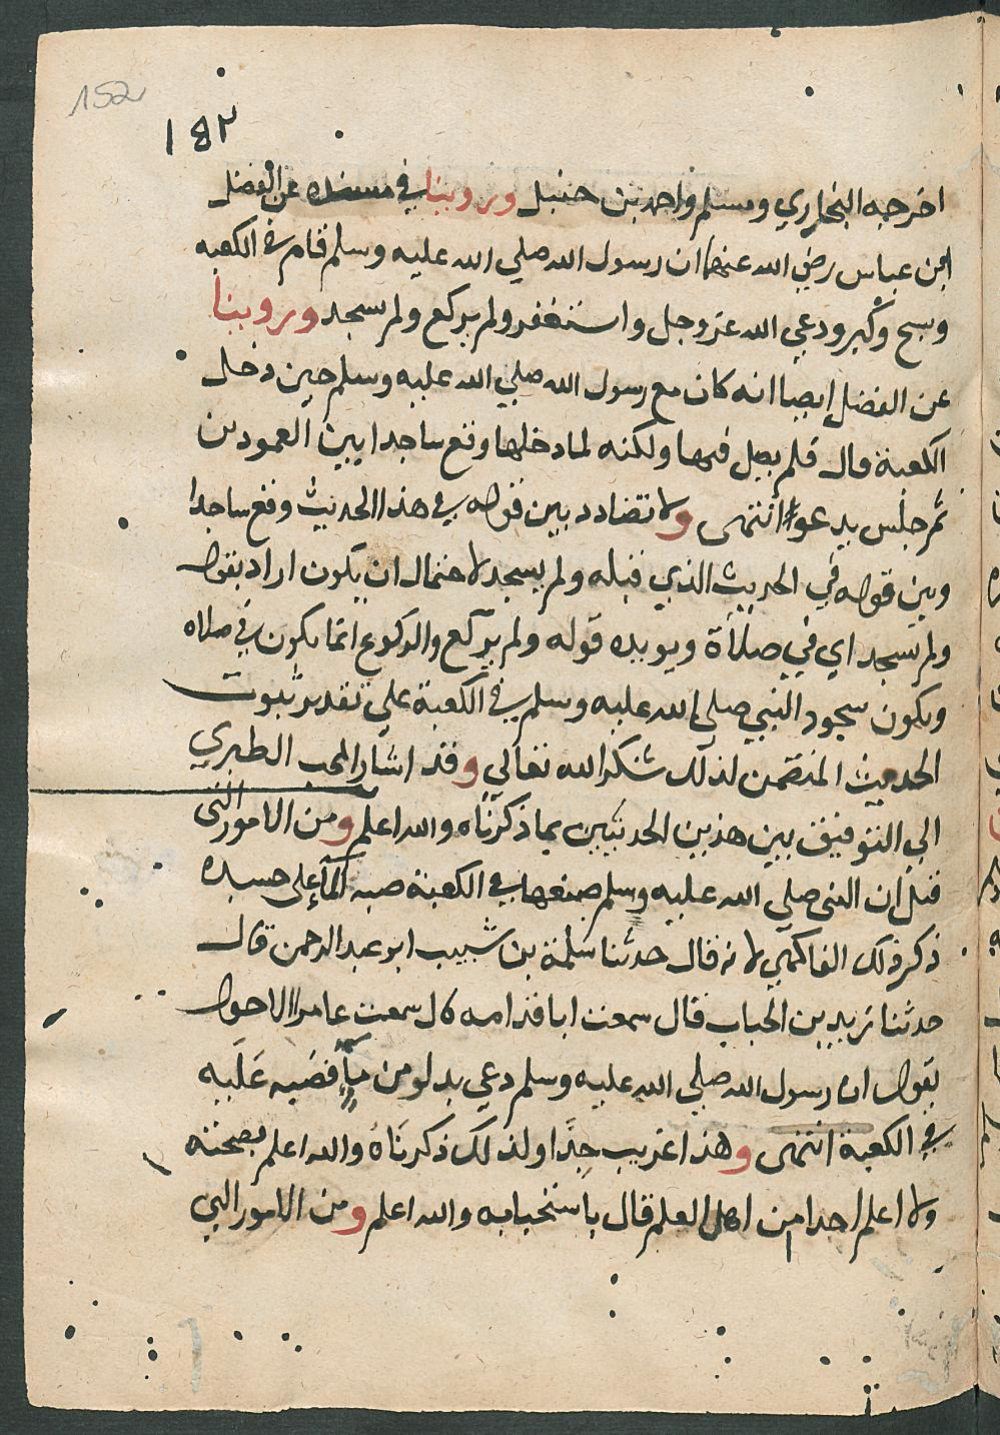 152
١٥٢
اخرجه البخاري ومسلم واحمد بن حنبل وروينا في مسنده عن الفضل
ابن عباس رضي الله عنهما ان رسول الله صلي الله عليه وسلم قام في الكعبه
وسبح وكبر ودعي الله عز وجل واستغفر ولم يركع ولم يسجد وروينا
عن الفضل ايضا انه كان مع رسول الله صلي الله عليه وسلم حين دخل
الكعبة قال فلم يصل فيها ولكنه لما دخلها وقع ساجدا بين العمودين
ثم جلس يدعو انتهى ولا تضادد بين قوله في هذا الحديث وقع ساجدا
وبين قوله في الحديث الذي قبله ولم يسجد لاحتمال ان يكون اراد بقوله
ولم يسجد اي في صلاة ويويده قوله ولم يركع والركوع انما يكون في صلاه
ويكون سجود النبي صلى الله عليه وسلم في الكعبة علي تقدير ثبوت
الحديث المتضمن لذلك شكرا لله تعالي وقد اشار المحب الطبري
الي التوفيق بين هذين الحديثين بما ذكرناه والله اعلم ومن الامور التي
قيل ان النبي صلي الله عليه وسلم صنعها في الكعبة صبه الماء على جسده
ذكر ذلك الفاكهي لانه قال حدثنا سلمة بن شبيب ابو عبد الرحمن قال
حدثنا زيد بن الحباب قال سمعت ابا قدامه قال سمعت عامرا الاحول
يقول ان رسول الله صلي الله عليه وسلم دعي بدلو من ماء فصبه عَلَيه
في الكعبة انتهى وهذا غريب جِدًا ولذلك ذكرنَاهُ والله اعلم بصحته
ولا اعلم احدا من اهل العلم قال باستحبابه والله اعلم ومن الامور التي